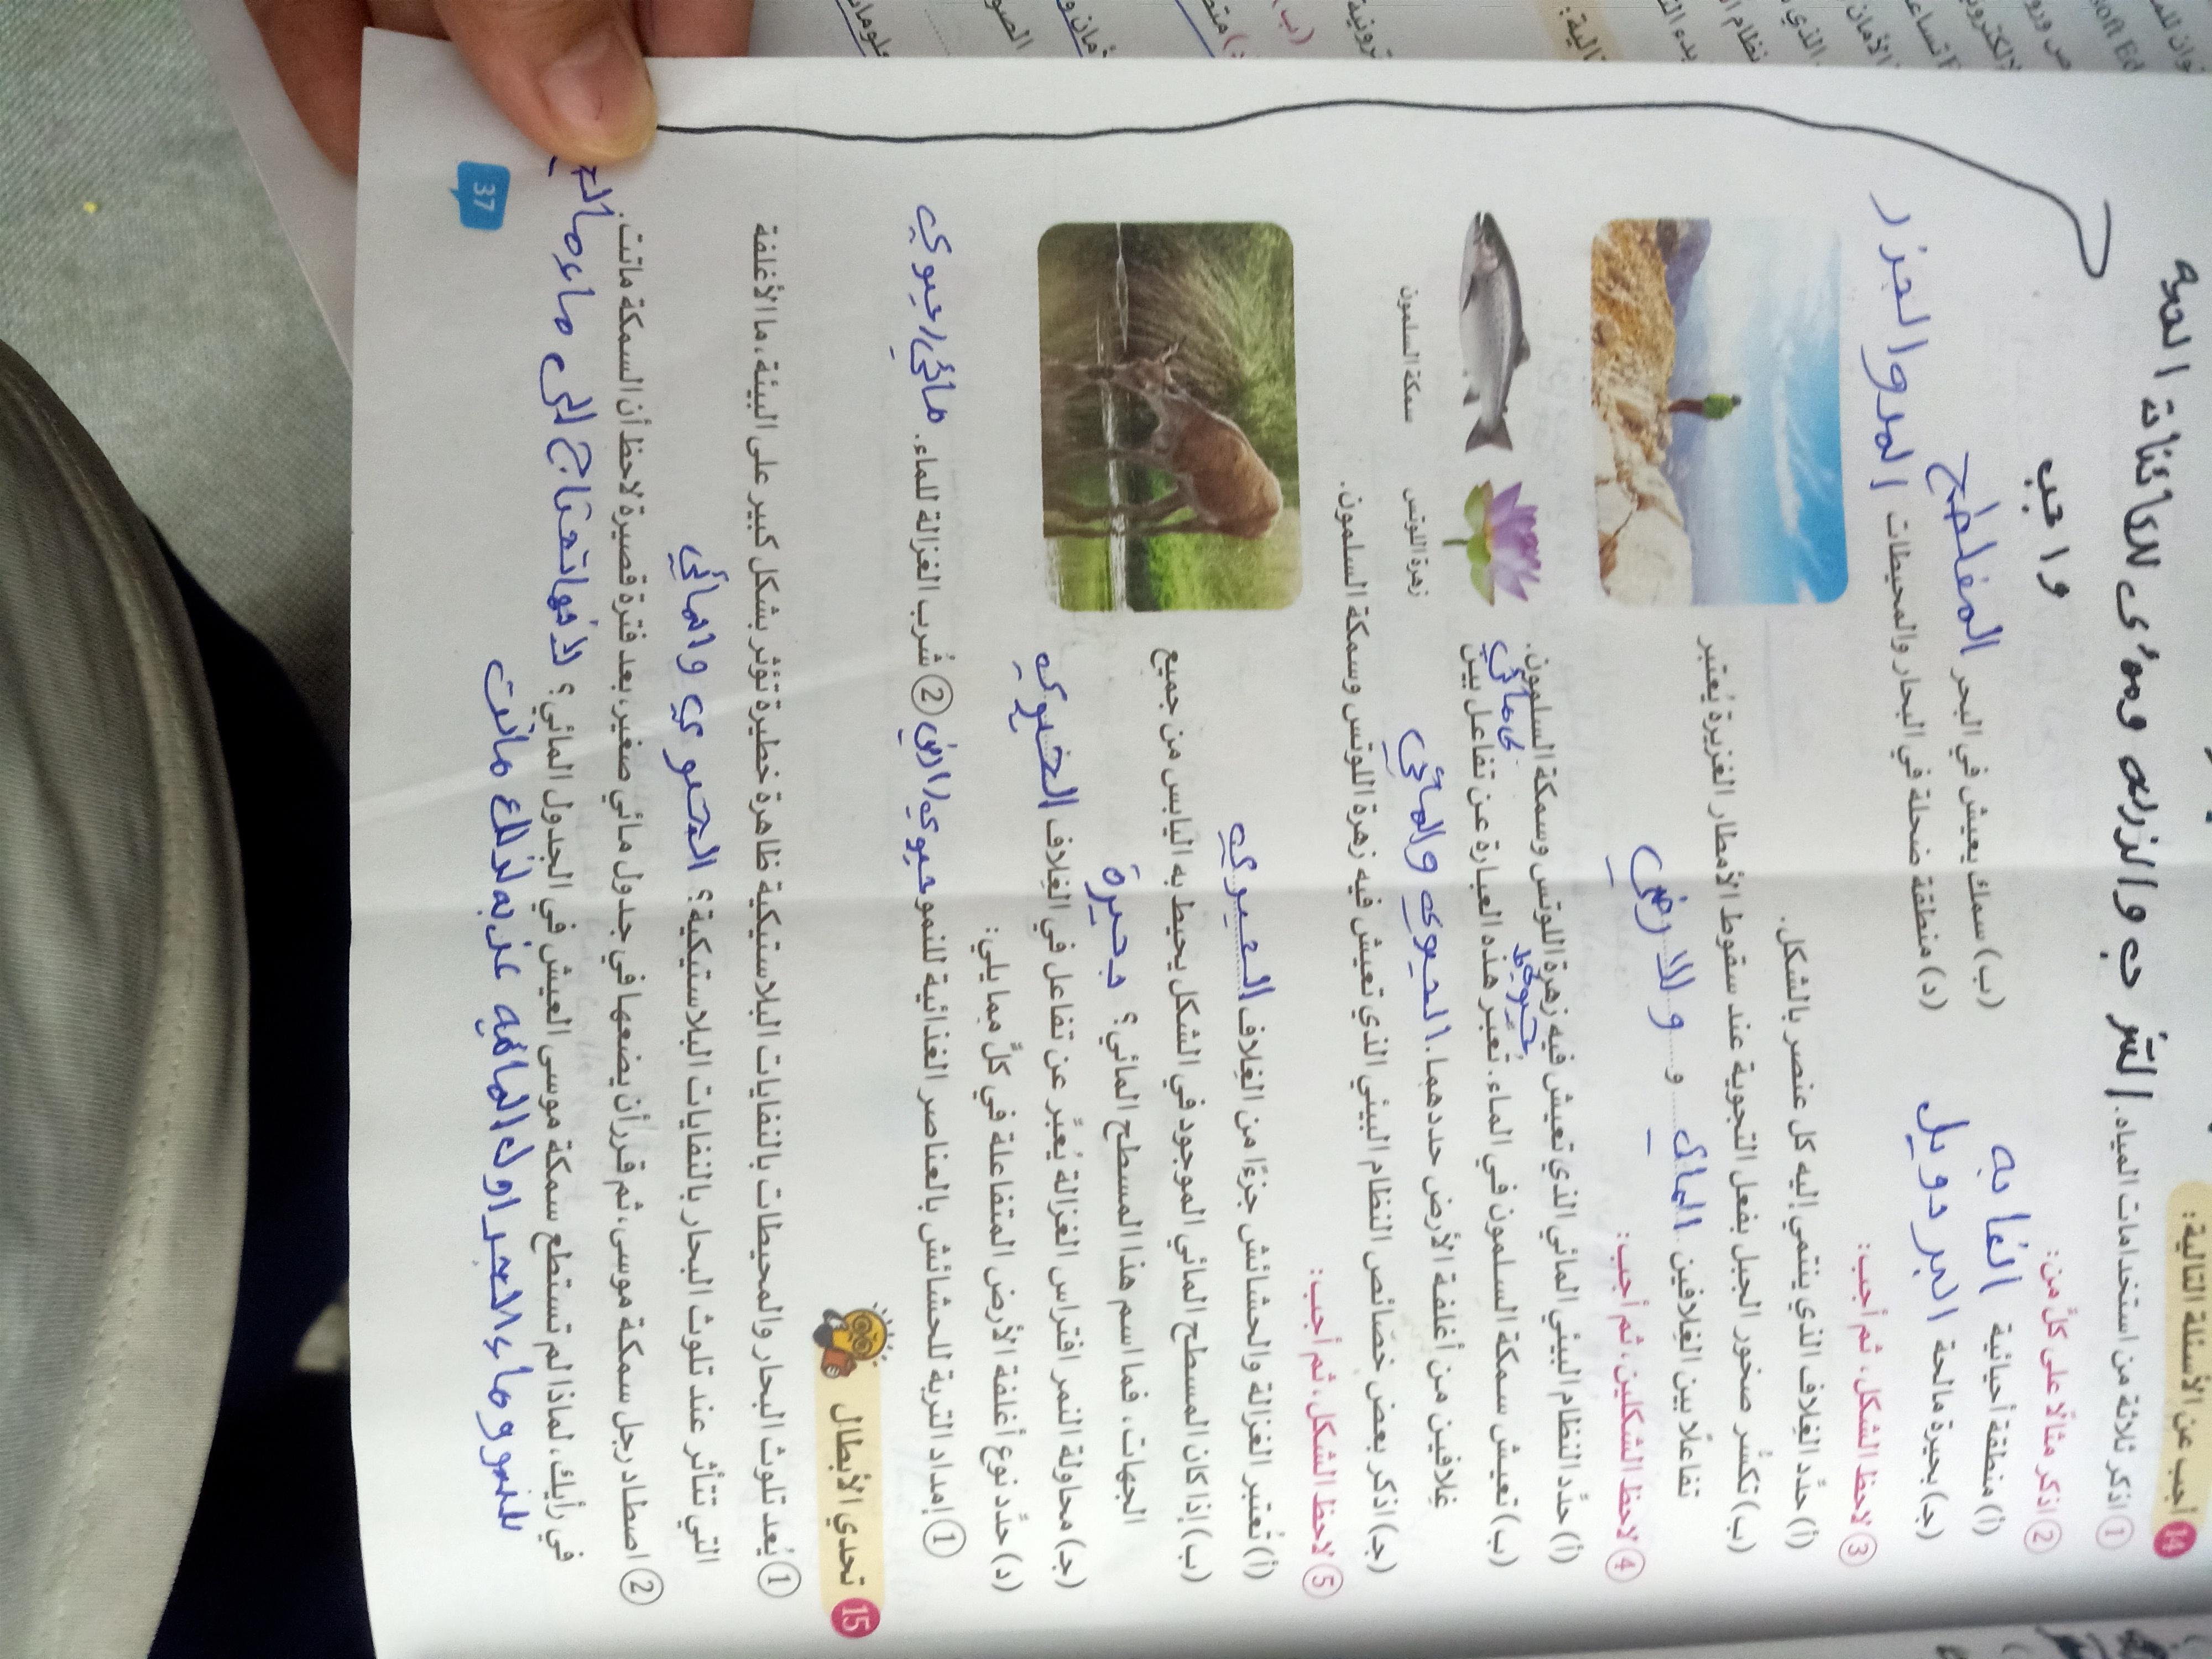 14 أجب عن الأسئلة التالية:
① اذكر ثلاثة من استخدامات المياه.
② اذكر مثالًا على كلٍّ من:
واجب
(أ) منطقة أحيائية الغابه (ب) سمك يعيش في البحر المفلطح
(جـ) بحيرة مالحة البردويل (د) منطقة ضحلة في البحار والمحيطات المدوالجزر
③ لاحظ الشكل، ثم أجب:
(أ) حدِّد الغِلاف الذي ينتمي إليه كل عنصر بالشكل.
(ب) تكسُّر صخور الجبل بفعل التجوية عند سقوط الأمطار الغزيرة يُعتبر
تفاعلًا بين الغِلافين المائى و والارضي
④ لاحظ الشكلين، ثم أجب:
(أ) حدِّد النظام البيئي المائي الذي تعيش فيه زهرة اللوتس وسمكة السلمون.
(ب) تعيش سمكة السلمون في الماء. تعبر هذه العبارة عن تفاعل بين
غِلافين من أغلفة الأرض حددهما. الحيوي والمائي
(جـ) اذكر بعض خصائص النظام البيئي الذي تعيش فيه زهرة اللوتس وسمكة السلمون.
سمكة السلمون
زهرة اللوتس
⑤ لاحظ الشكل، ثم أجب:
(أ) تُعتبر الغزالة والحشائش جزءًا من الغِلاف الحيوي
(ب) إذا كان المسطح المائي الموجود في الشكل يحيط به اليابس من جميع
الجهات، فما اسم هذا المسطح المائي؟ بحيرة
(جـ) محاولة النمر افتراس الغزالة يُعبِّر عن تفاعل في الغِلاف الحيوي
(د) حدِّد نوع أغلفة الأرض المتفاعلة في كلٍّ مما يلي:
① إمداد التربة للحشائش بالعناصر الغذائية للنمو حيوي/ارضي ② شُرب الغزالة للماء. مائي/حيوي
15 تحدي الأبطال
① يُعد تلوث البحار والمحيطات بالنفايات البلاستيكية ظاهرة خطيرة تؤثر بشكل كبير على البيئة، ما الأغلفة
التي تتأثر عند تلوث البحار بالنفايات البلاستيكية؟ الحيوي والمائي
② اصطاد رجل سمكة موسى، ثم قرر أن يضعها في جدول مائي صغير، بعد فترة قصيرة لاحظ أن السمكة ماتت.
في رأيك، لماذا لم تستطع سمكة موسى العيش في الجدول المائي؟ لانها تحتاج إلى ماء مالح
للنمو وماء المائيه عذبه لذلك ماتت
37